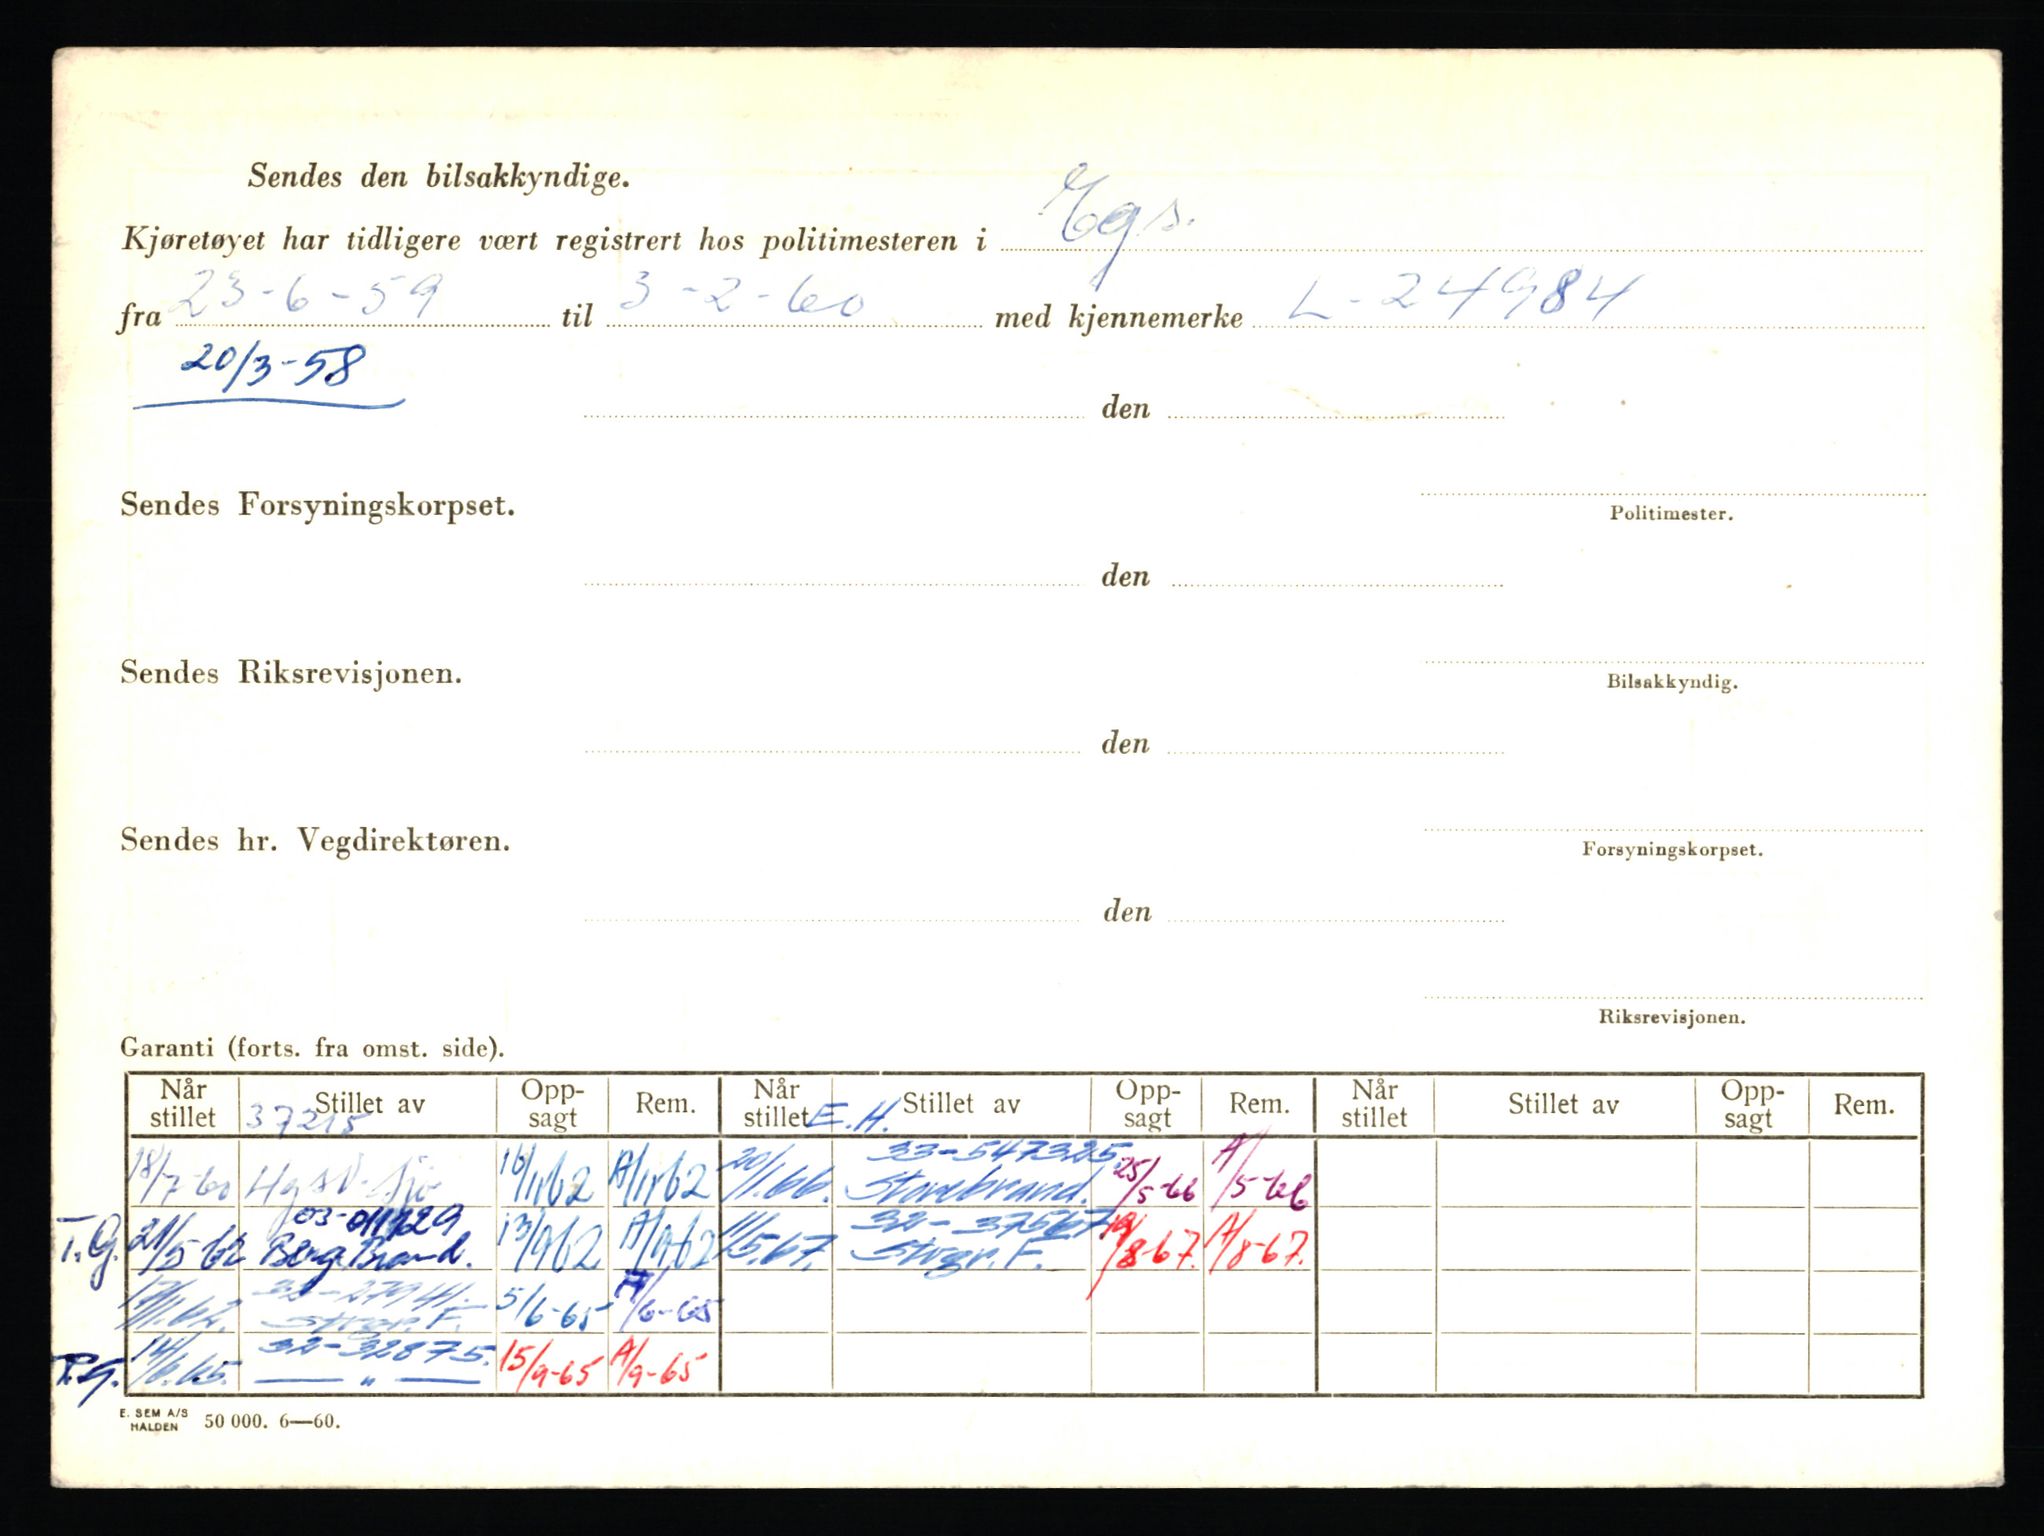 Sendes den bilsakkyndige.
Kjøretøyet har tidligere vært registrert hos politimesteren i Egs.
fra 23-6-59 til 3-2-60 med kjennemerke L-24984
20/3-58
den
Sendes Forsyningskorpset.
Politimester.
den
Sendes Riksrevisjonen.
Bilsakkyndig.
den
Sendes hr. Vegdirektøren.
Forsyningskorpset.
den
Riksrevisjonen.
Garanti (forts. fra omst. side).
Når stillet Stillet av Opp-sagt Rem. Når stillet Stillet av Opp-sagt Rem. Når stillet Stillet av Opp-sagt Rem.
37215 E.H.
33-547325.
18/7-60 16/11-62 A/11-62 20/1.66. Storebrand. 25/5-66 A/5-66
32-37567
T.G. 21/5-62 Berg. Brand. 13/9-62 A/9-62 11/5.67. Stvgr. F. 19/8-67. A/8-67.
32-27941.
Stvgr. F. 5/6-65 A/6-65
32-32875.
T.G. 14/6.65. — " — 15/9-65 A/9-65
E. SEM A/S
HALDEN 50 000. 6—60.